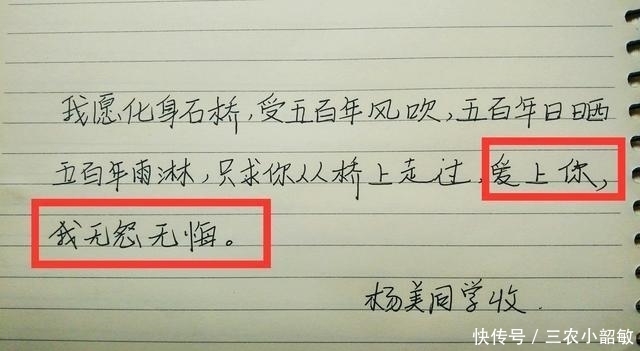 我愿化身石桥,受五百年风吹,五百年日晒
五百年雨淋,只求你从桥上走过,爱上你,
我无怨无悔。
杨美同学收.
快传号/三农小韶敏